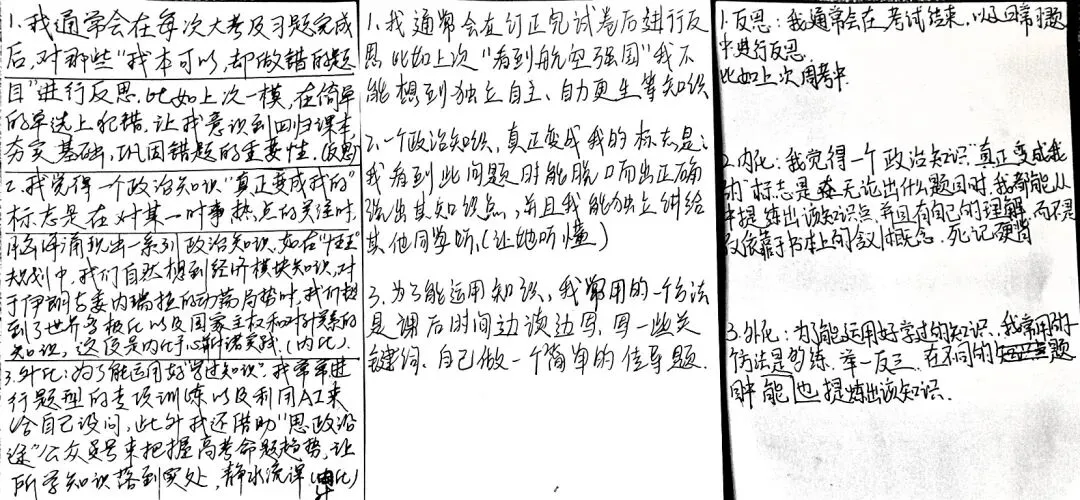 1.我通常会在每次大考及习题完成
后,对那些"我本可以,却做错的题
目"进行反思.比如上次一模,在简单
的单选上犯错.让我意识到回归课本,
夯实基础,巩固错题的重要性.(反思)
2.我觉得一个政治知识"真正变成我的"
标志是在对某一时事热点的关注时,
脑海涌现出一系列政治知识.如在"十五五"
规划中,我们自然想到经济模块知识,对
于伊朗与委内瑞拉的动荡局势时,我们想
到了世界多极化以及国家主权和对外关系的
知识,这便是内化于心解诸实践.(内化).
3.外化:为了能运用好"学过知识".我常常进
行题型的专项训练以及利用AI来
给自己设问,此外我还借助"思政沿
途"公众号来把握高考命题趋势.让
所学知识落到实处,静水流深(外化)
1.我通常会在订正完试卷后进行反
思 比如上次"看到航空强国"我不
能想到独立自主、自力更生等知识
2.一个政治知识,真正变成我的标志是:
我看到此问题时能脱口而出正确
说出其知识点,并且我能独立讲给
其他同学听,(让她听懂)
3.为了能运用知识,我常用的一个方法
是课后时间边读边写,写一些关
键词.自己做一个简单的传导题.
1.反思:我通常会在考试结束,以及日常习题
中进行反思.
比如上次周考中
2.内化:我觉得一个政治知识"真正变成我
的"标志是 无论出什么题目时,我都能从
中提炼出该知识点,并且有自己的理解,而不是
仅依靠于书本上的含义概念,死记硬背
3.外化:为了能运用好学过的知识,我常用的一
个方法是多练,举一反三,在不同的题
目中能也提炼出该知识.